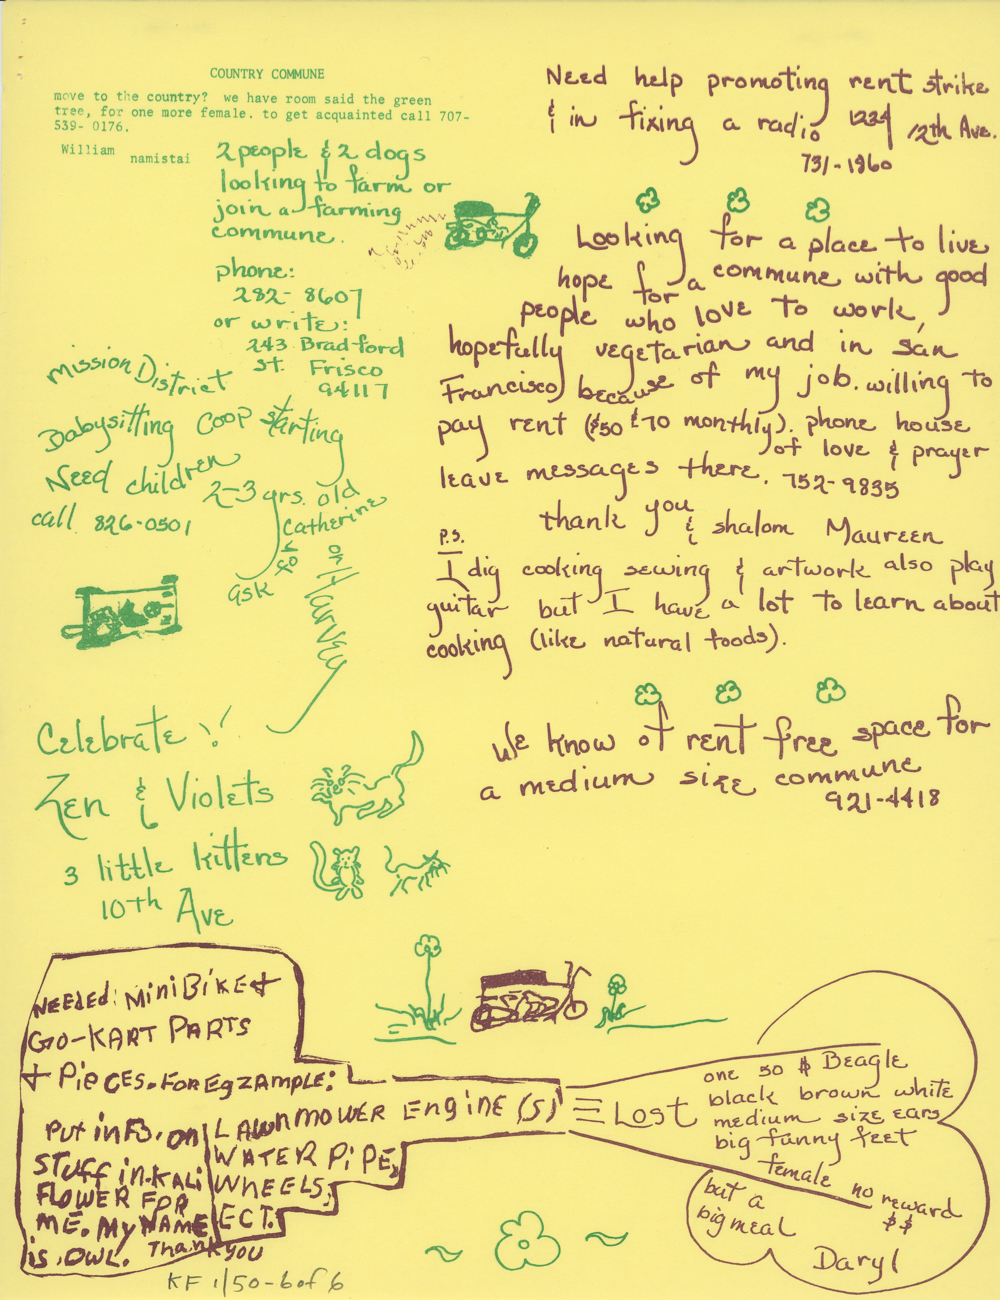 COUNTRY COMMUNE
move to the country?  we have room said the green
tree, for one more female. to get acquainted call 707-
539- 0176.
William namistai
2 people & 2 dogs
looking to farm or
join a farming
commune.
phone:
282-8607
or write:
243 Bradford
St. Frisco
94117
Mission District
Babysitting Coop starting
Need children
2-3 yrs. old
call 826-0501
ask for Catherine
or Harvey
Celebrate !
Zen & Violets
3 little kittens
10th Ave
Need help promoting rent strike
& in fixing a radio 1224 12th Ave.
731-1860
Looking for a place to live
hope for a commune with good
people who love to work,
hopefully vegetarian and in san
Francisco because of my job. willing to
pay rent ($50 & 70 monthly). phone house
of love & prayer
leave messages there. 752-9835
thank you
& shalom Maureen
P.S.
I dig cooking sewing & artwork also play
guitar but I have a lot to learn about
cooking (like natural foods).
We know of rent free space for
a medium size commune
921-4418
NEEDED: MiniBIKE+
GO-KART PARTS
+ PiECES. FOR EgZAMPLE:
LAWNMOWER ENGINE (S)
WATER PiPE,
WHEELS,
ECT.
PUT inF3. ON
STUFF in.KALi
FLOWER FOR
ME. My NAME
is .OWL. ThankYOU
Lost
one 50 $ Beagle
black brown white
medium size ears
big funny feet
female no reward
$$
but a
big meal
Daryl
KF 1/50-6 of 6